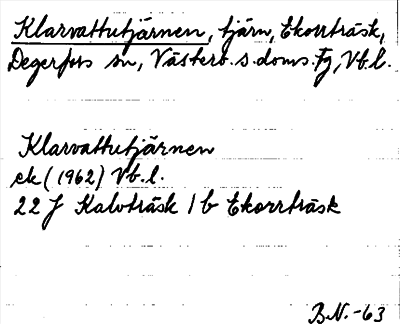 Klarvattutjärnen, tjärn, Ekorrträsk,
Degerfors sn, Västerb. s. doms. Fg, Vb.l.
Klarvattutjärnen
ek (1962) Vb.l.
22 J Kalvträsk 1 b Ekorrträsk
B.N. -63